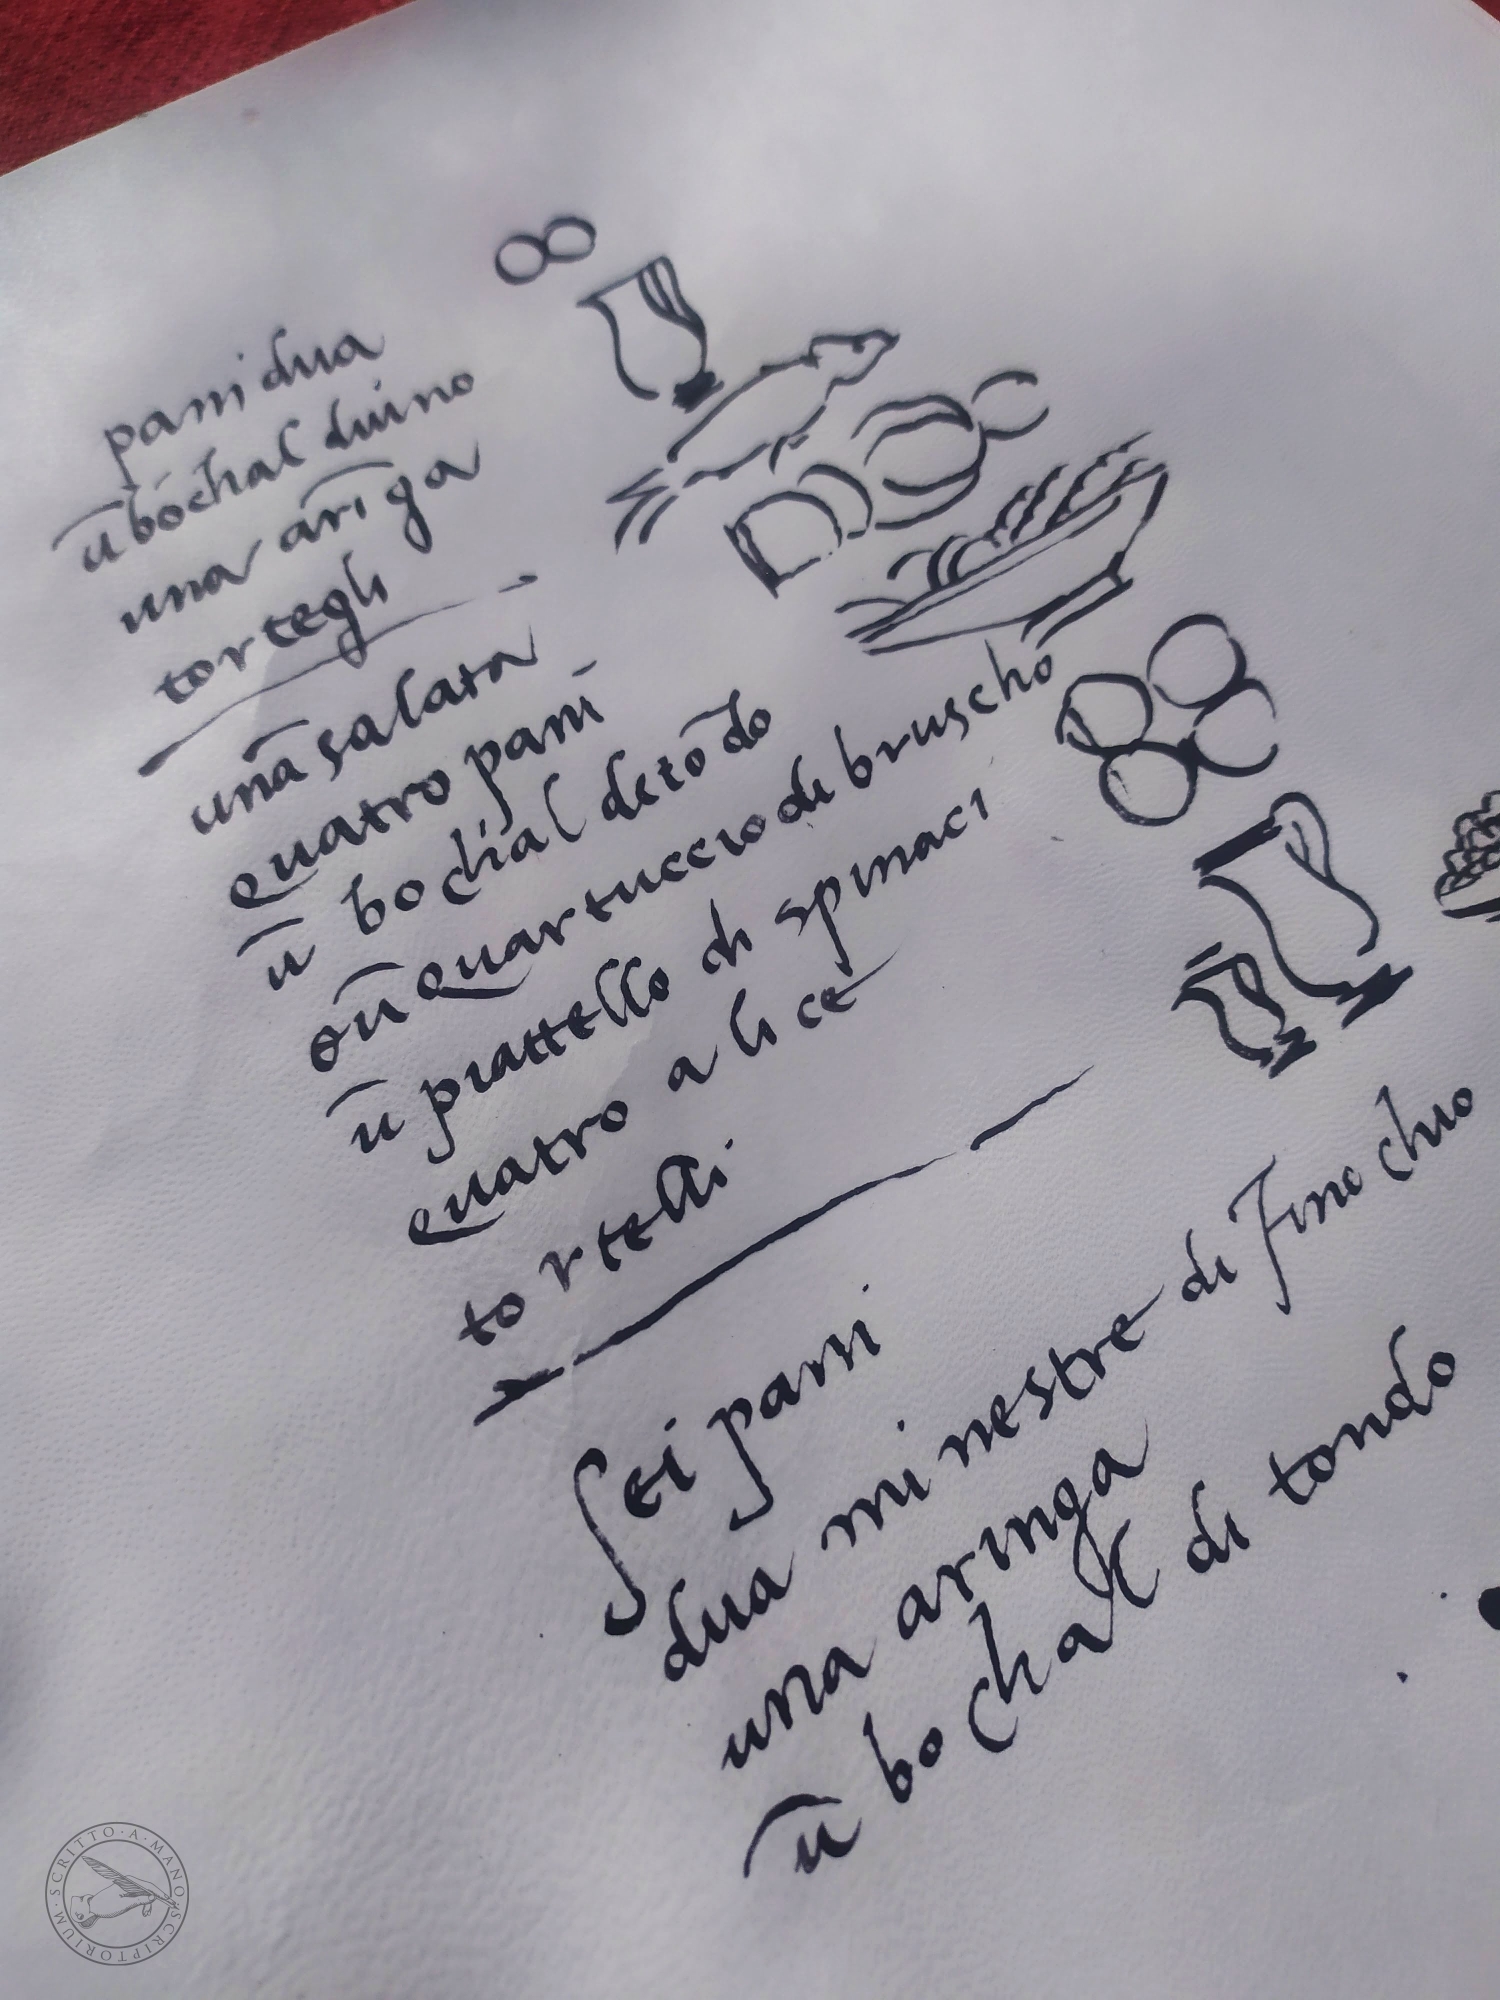 pani dua
ū bochal duino
una ariḡa
tortegli
una salata
quatro pani
ū bochal de tōdo
e ū quartuccio di bruscho
ū piattello di spinaci
quatro alice
tortelli
sei pani
dua minestre di finochio
una aringa
ū bochal di tondo
SCRITTO · A · MANO · SCRIPTORIUM ·